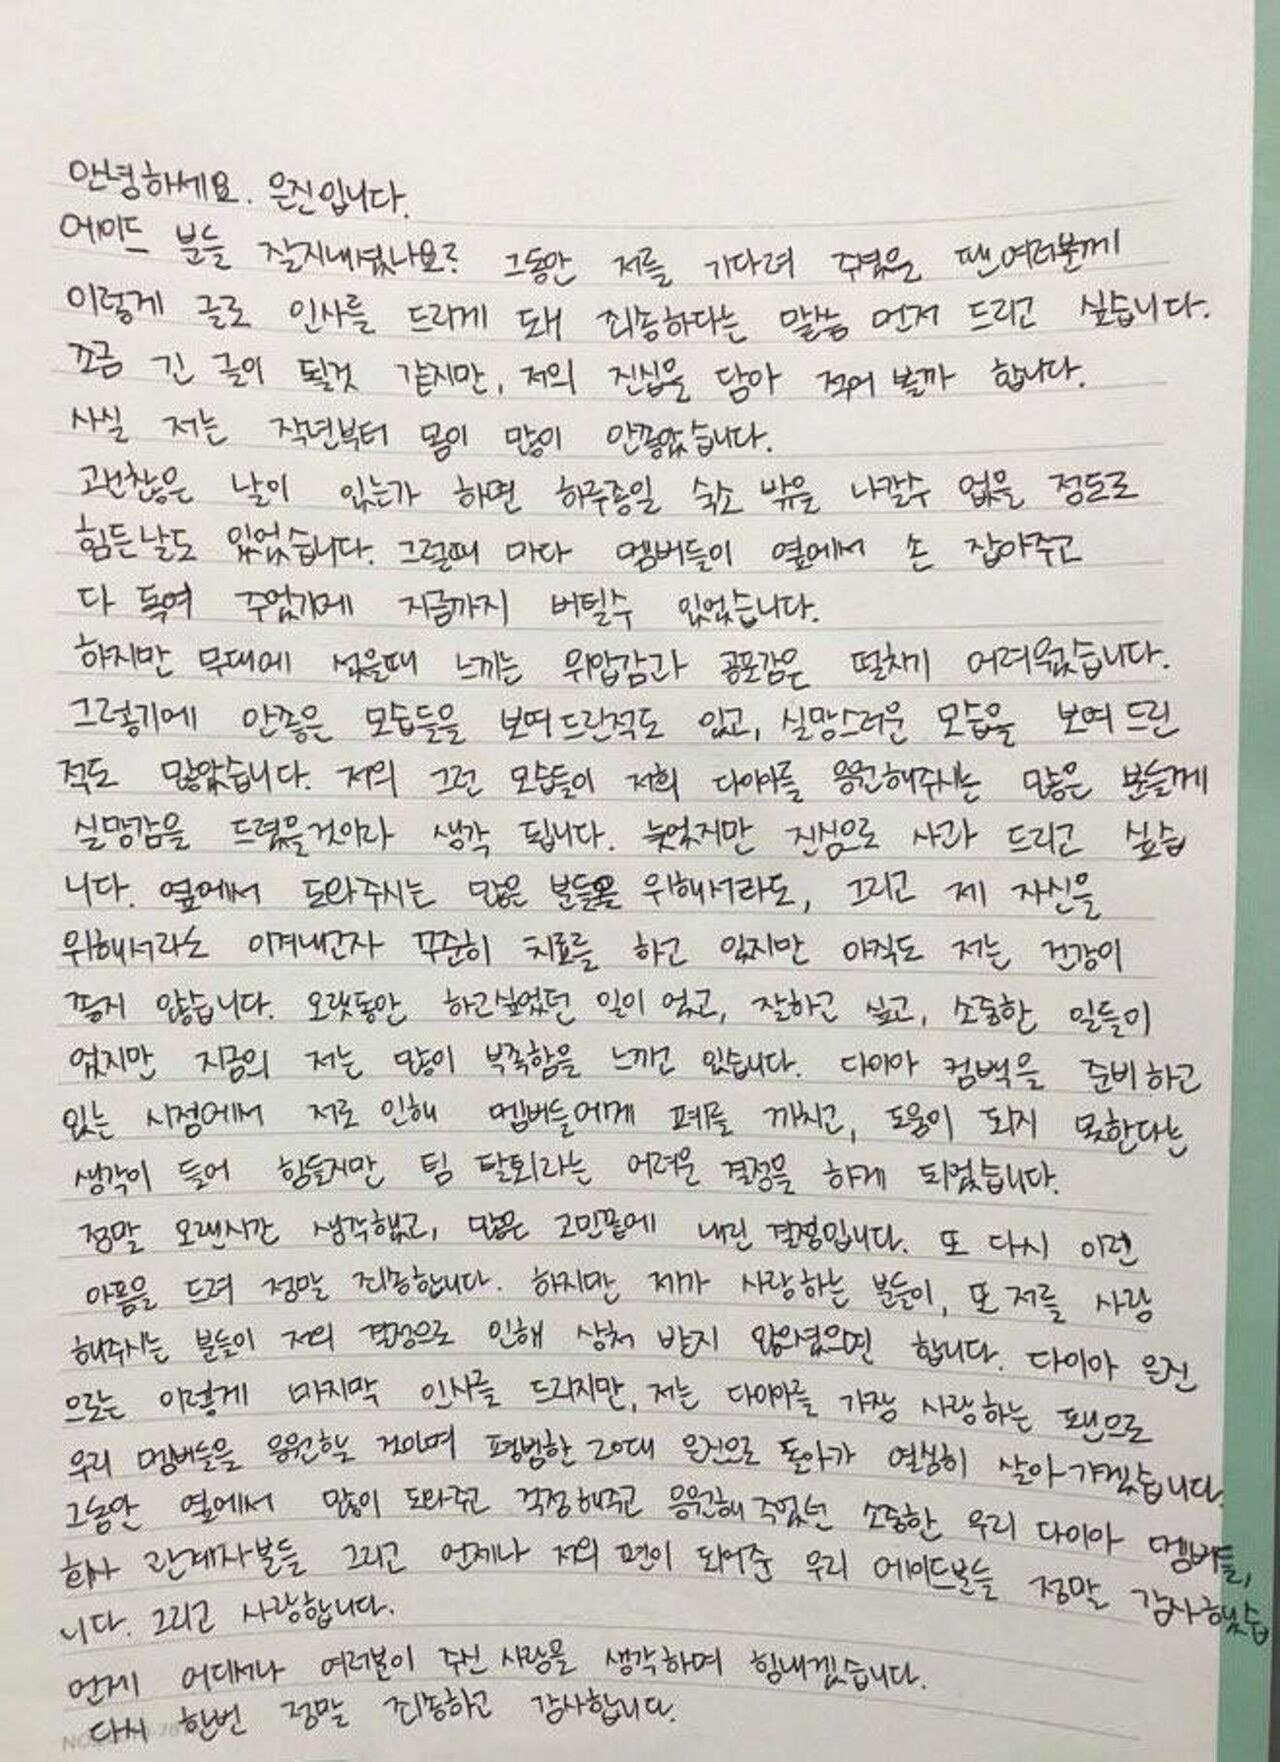 안녕하세요. 은진입니다.
에이드 분들 잘지내셨나요? 그동안 저를 기다려 주셨을 팬여러분께
이렇게 글로 인사를 드리게 돼 죄송하다는 말씀 먼저 드리고 싶습니다.
조금 긴 글이 될것 같지만, 저의 진심을 담아 적어 볼까 합니다.
사실 저는 작년부터 몸이 많이 안좋았습니다.
괜찮은 날이 있는가 하면 하루종일 숙소 밖을 나갈수 없을 정도로
힘든날도 있었습니다. 그럴때 마다 멤버들이 옆에서 손 잡아주고
다 독여 주었기에 지금까지 버틸수 있었습니다.
하지만 무대에 섰을때 느끼는 위압감과 공포감은 떨치기 어려웠습니다.
그렇기에 안좋은 모습들을 보여드린적도 있고, 실망스러운 모습을 보여 드린
적도 많았습니다. 저의 그런 모습들이 저희 다이아를 응원해주시는 많은 분들께
실망감을 드렸을것이라 생각 됩니다. 늦었지만 진심으로 사과 드리고 싶습
니다. 옆에서 도와주시는 많은 분들을 위해서라도, 그리고 제 자신을
위해서라도 이겨내고자 꾸준히 치료를 하고 있지만 아직도 저는 건강이
좋지 않습니다. 오랫동안 하고싶었던 일이 었고, 잘하고 싶고, 소중한 일들이
었지만 지금의 저는 많이 부족함을 느끼고 있습니다. 다이아 컴백을 준비하고
있는 시점에서 저로 인해 멤버들에게 폐를 끼치고, 도움이 되지 못한다는
생각이 들어 힘들지만 팀 탈퇴라는 어려운 결정을 하게 되었습니다.
정말 오랜시간 생각했고, 많은 고민끝에 내린 결정입니다. 또 다시 이런
아픔을 드려 정말 죄송합니다. 하지만 제가 사랑하는 분들이, 또 저를 사랑
해주시는 분들이 저의 결정으로 인해 상처 받지 않으셨으면 합니다. 다이아 은진
으로는 이렇게 마지막 인사를 드리지만, 저는 다이아를 가장 사랑하는 팬으로
우리 멤버들을 응원할 것이며 평범한 20대 은진으로 돌아가 열심히 살아가겠습니다.
그동안 옆에서 많이 도와주고 걱정해주고 응원해주었던 소중한 우리 다이아 멤버들,
회사 관계자분들 그리고 언제나 저의 편이 되어준 우리 에이드분들 정말 감사했습
니다. 그리고 사랑합니다.
언제 어디서나 여러분이 주신 사랑을 생각하며 힘내겠습니다.
다시 한번 정말 죄송하고 감사합니다.